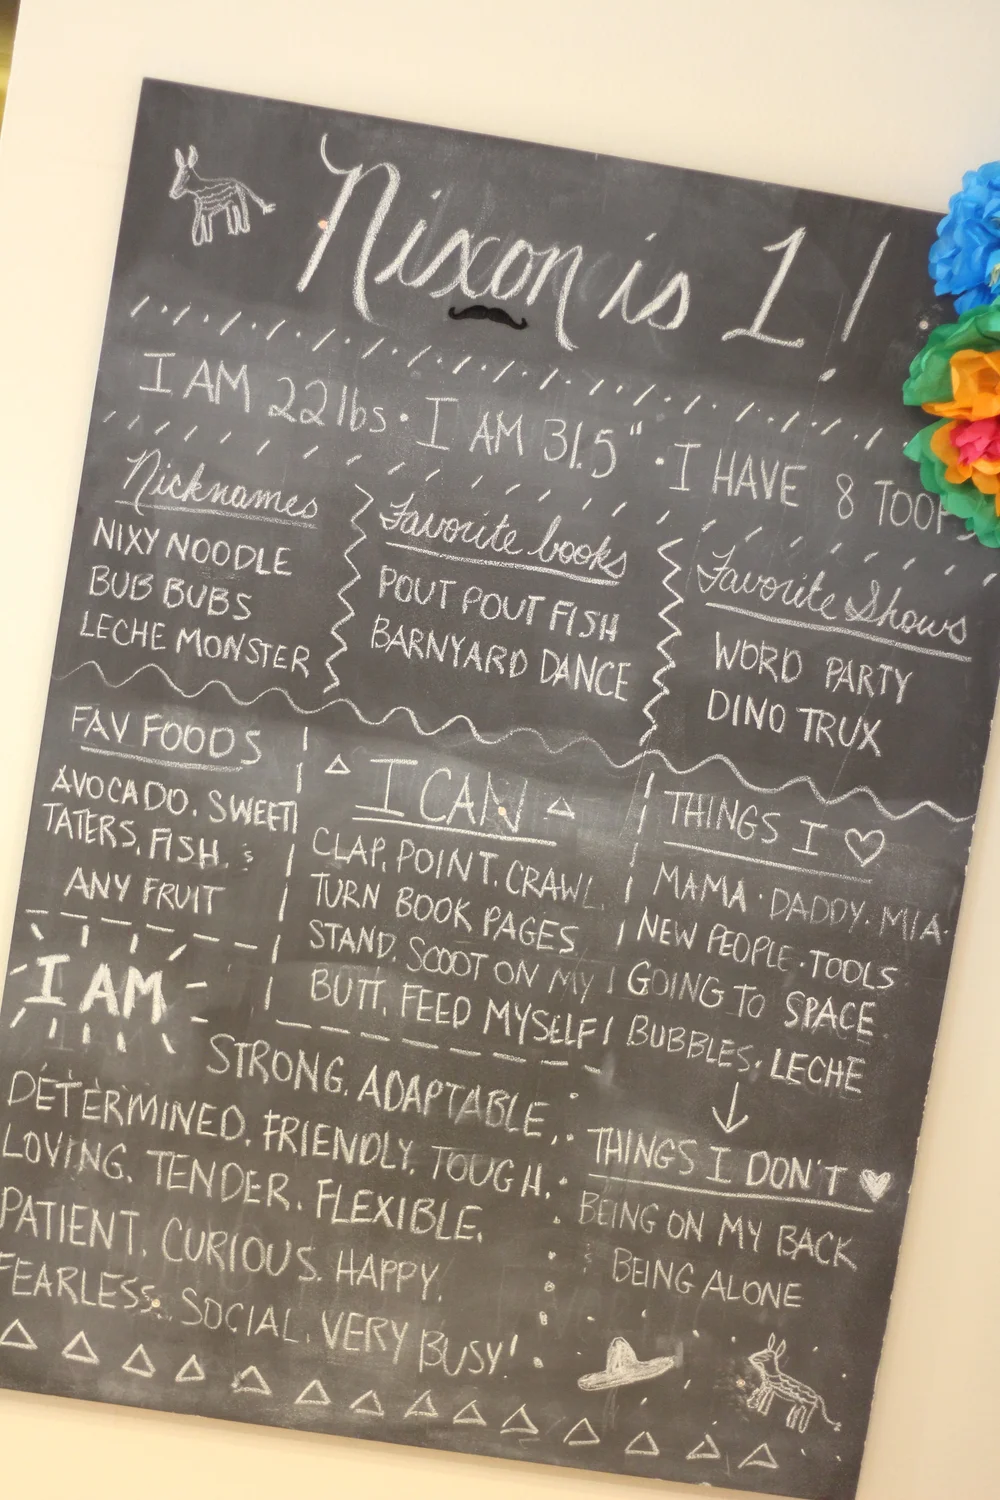 Nixon is 1!
I AM 22lbs · I AM 31.5" · I HAVE 8 TOOF
Nicknames
NIXY NOODLE
BUB BUBS
LECHE MONSTER
Favorite books
POUT POUT FISH
BARNYARD DANCE
Favorite Shows
WORD PARTY
DINO TRUX
FAV FOODS
AVOCADO. SWEET
TATERS. FISH. &
ANY FRUIT
I CAN
CLAP. POINT. CRAWL.
TURN BOOK PAGES
STAND. SCOOT ON MY
BUTT. FEED MYSELF
THINGS I ♡
MAMA · DADDY. MIA.
NEW PEOPLE · TOOLS
GOING TO SPACE.
BUBBLES. LECHE
I AM
STRONG. ADAPTABLE.
DETERMINED. FRIENDLY. TOUGH.
LOVING. TENDER. FLEXIBLE.
PATIENT. CURIOUS. HAPPY.
FEARLESS. SOCIAL. VERY BUSY!
THINGS I DON'T ♥
BEING ON MY BACK
& BEING ALONE